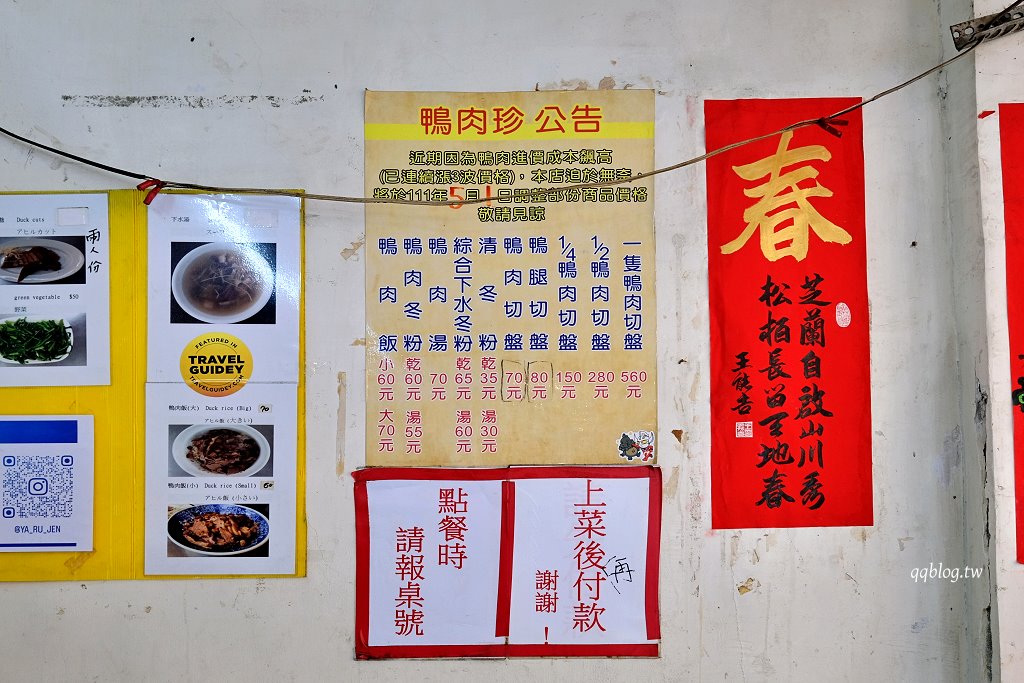 Duck cuts
アヒルカット
兩人份
green vegetable $50
野菜
@YA_RU_JEN
下水湯
FEATURED IN
TRAVEL
GUIDEY
TRAVELGUIDEY.COM
鴨肉飯(大) Duck rice (Big) 70
アヒル飯 (大きい)
鴨肉飯(小) Duck rice (Small) 60
アヒル飯 (小さい)
鴨肉珍 公告
近期因為鴨肉進價成本飆高
(已連續漲3波價格)，本店迫於無奈，
將於111年5月1日調整部份商品價格
敬請見諒
一隻鴨肉切盤 560元
1/2鴨肉切盤 280元
1/4鴨肉切盤 150元
鴨腿切盤 80元
鴨肉切盤 70元
清冬粉 乾35元 湯30元
綜合下水冬粉 乾65元 湯60元
鴨肉湯 70元
鴨肉冬粉 乾60元 湯55元
鴨肉飯 小60元 大70元
上菜後再付款
謝謝!
點餐時
請報桌號
春
芝蘭自啟山川秀
松柏長留天地春
qqblog.tw